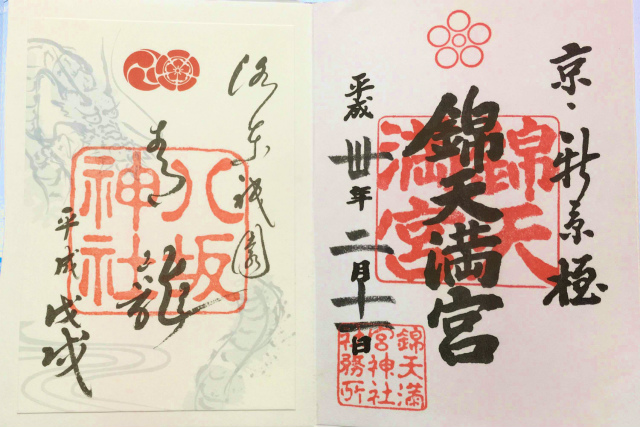 京・新京極
錦天満宮
錦天
満宮
平成卅年二月十一日
錦天満
宮神社
社務所
洛東祇園
青龍
八坂
神社
平成戊戌